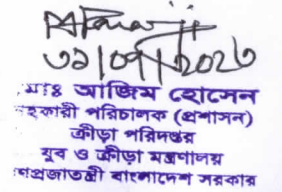 ৩১/০৭/২০২৩
মোঃ আজিম হোসেন
সহকারী পরিচালক (প্রশাসন)
ক্রীড়া পরিদপ্তর
যুব ও ক্রীড়া মন্ত্রণালয়
গণপ্রজাতন্ত্রী বাংলাদেশ সরকার